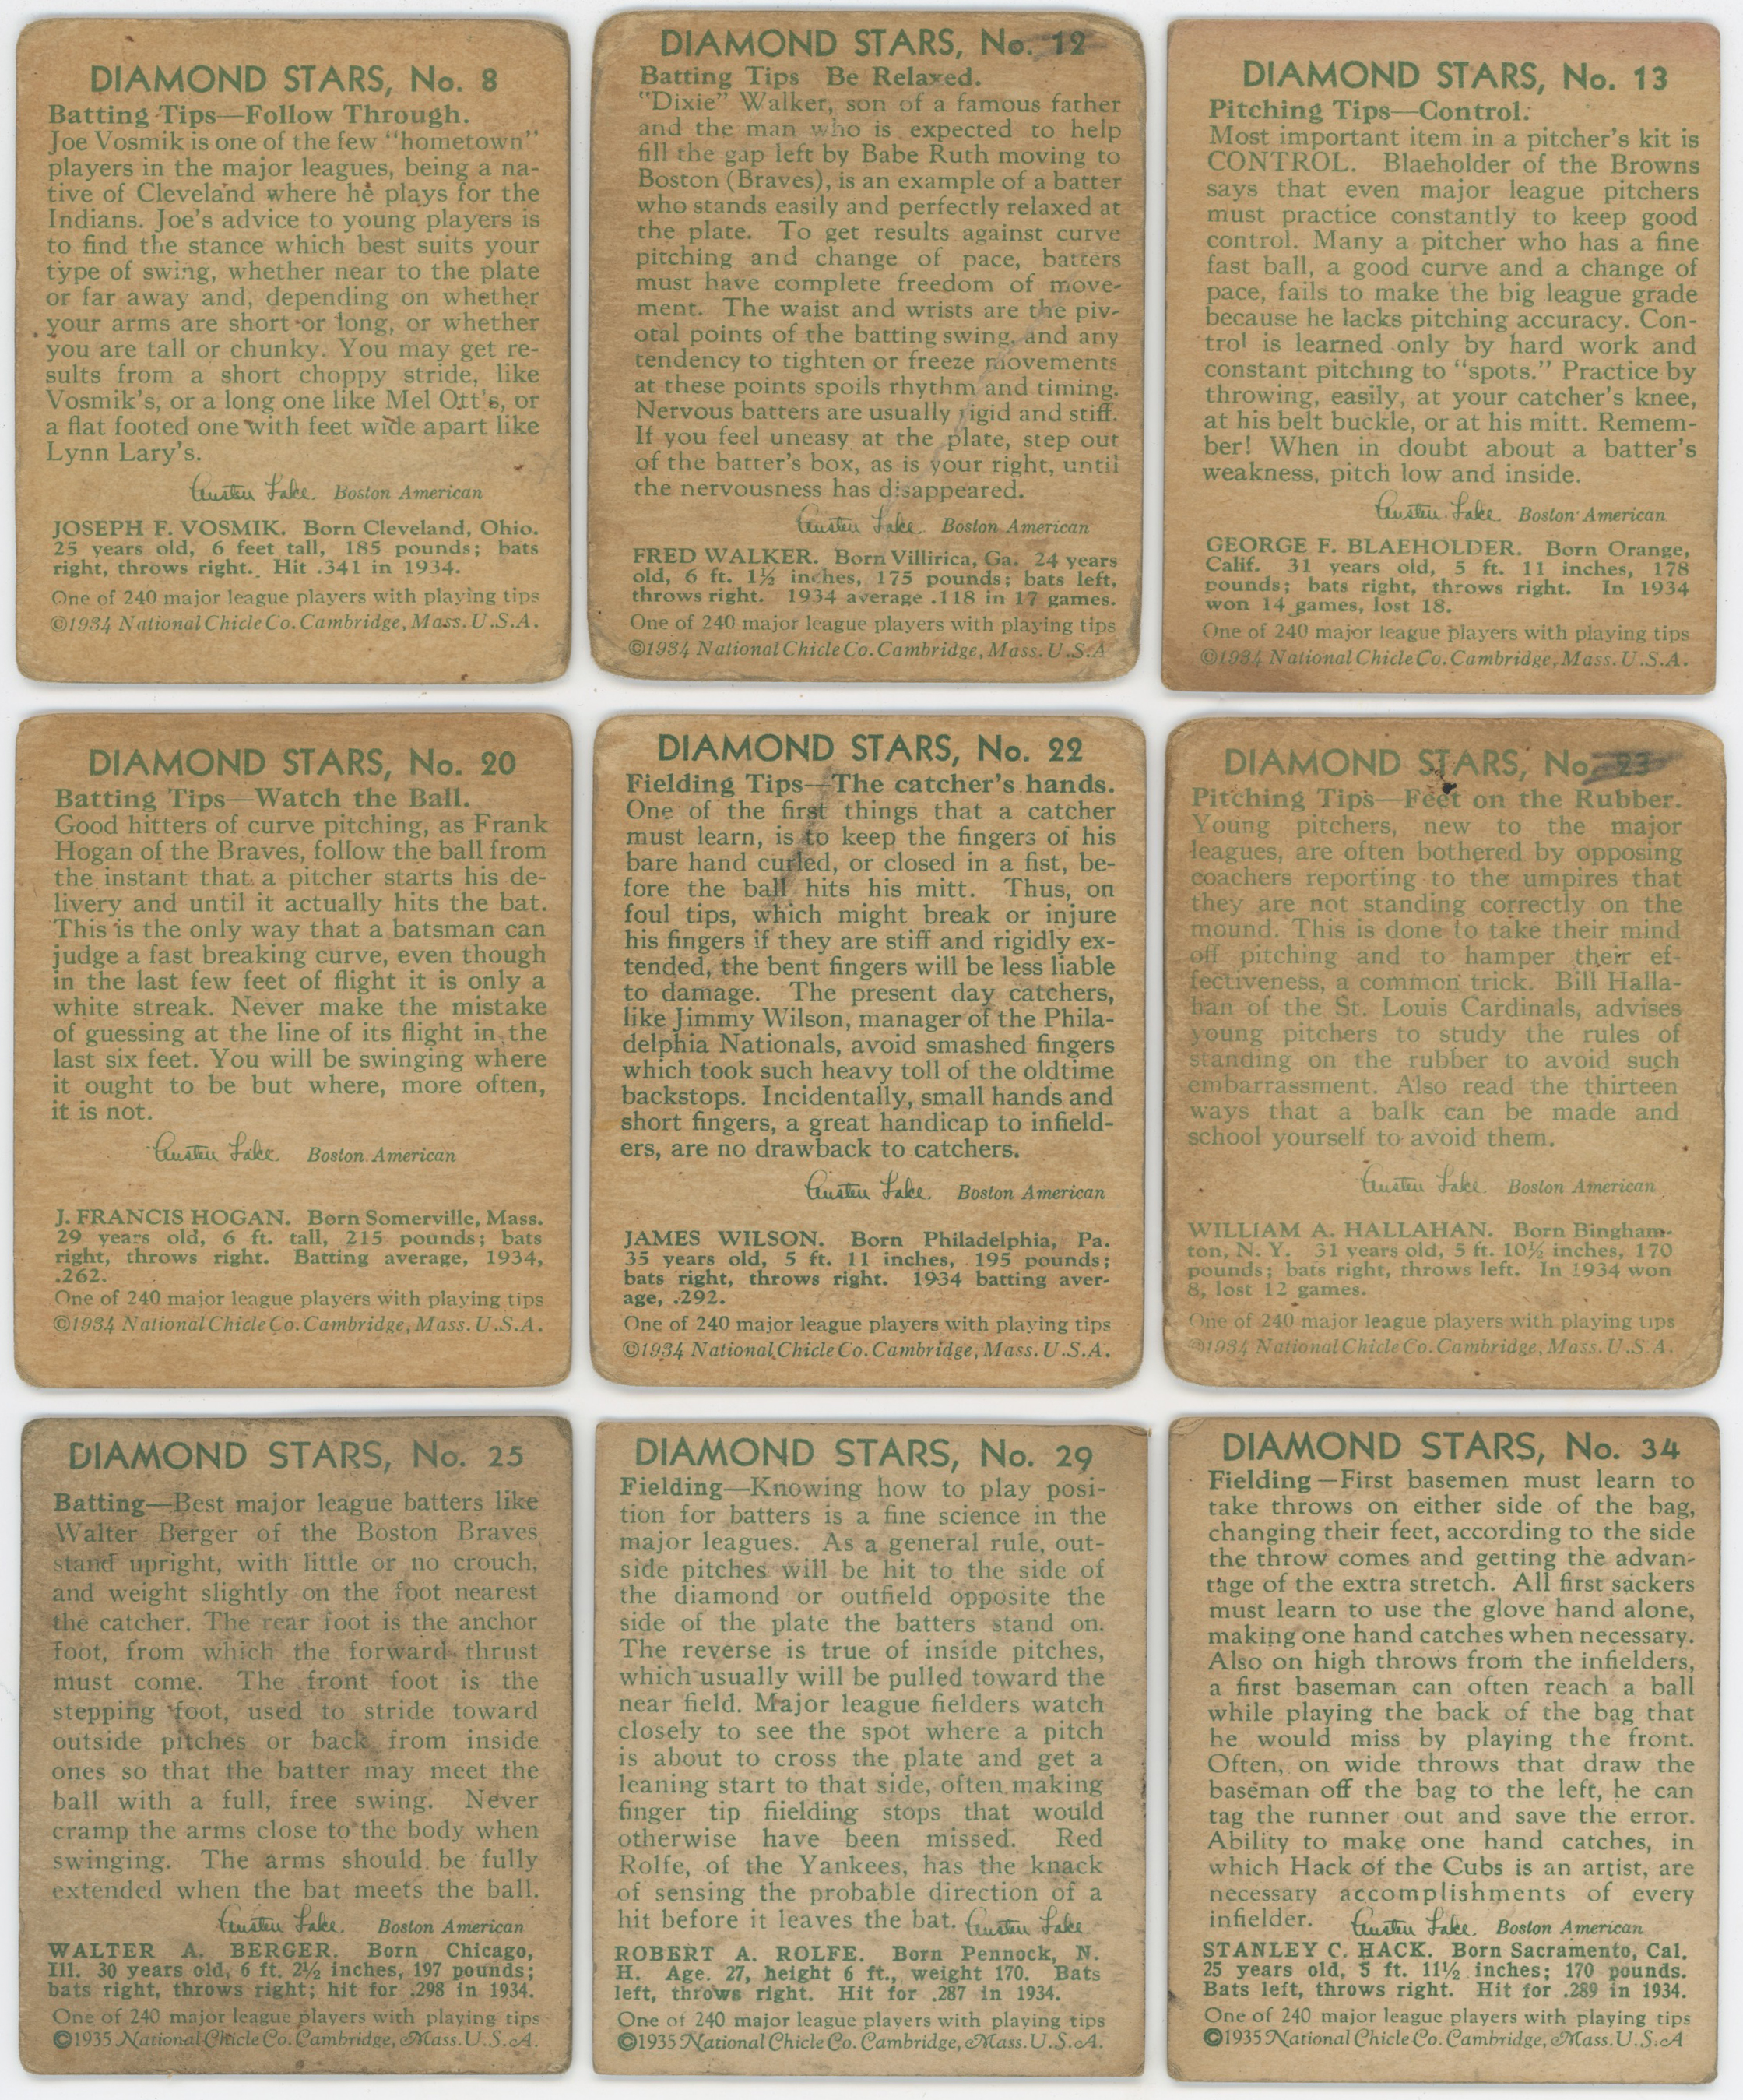 DIAMOND STARS, No. 8
Batting Tips—Follow Through.
Joe Vosmik is one of the few "hometown"
players in the major leagues, being a na-
tive of Cleveland where he plays for the
Indians. Joe's advice to young players is
to find the stance which best suits your
type of swing, whether near to the plate
or far away and, depending on whether
your arms are short or long, or whether
you are tall or chunky. You may get re-
sults from a short choppy stride, like
Vosmik's, or a long one like Mel Ott's, or
a flat footed one with feet wide apart like
Lynn Lary's.
Austen Lake. Boston American
JOSEPH F. VOSMIK. Born Cleveland, Ohio.
25 years old, 6 feet tall, 185 pounds; bats
right, throws right. Hit .341 in 1934.
One of 240 major league players with playing tips
©1934 National Chicle Co. Cambridge, Mass. U.S.A.
DIAMOND STARS, No. 12
Batting Tips Be Relaxed.
"Dixie" Walker, son of a famous father
and the man who is expected to help
fill the gap left by Babe Ruth moving to
Boston (Braves), is an example of a batter
who stands easily and perfectly relaxed at
the plate. To get results against curve
pitching and change of pace, batters
must have complete freedom of move-
ment. The waist and wrists are the piv-
otal points of the batting swing, and any
tendency to tighten or freeze movements
at these points spoils rhythm and timing.
Nervous batters are usually rigid and stiff.
If you feel uneasy at the plate, step out
of the batter's box, as is your right, until
the nervousness has disappeared.
Austen Lake. Boston American
FRED WALKER. Born Villirica, Ga. 24 years
old, 6 ft. 1½ inches, 175 pounds; bats left,
throws right. 1934 average .118 in 17 games.
One of 240 major league players with playing tips
©1934 National Chicle Co. Cambridge, Mass. U.S.A
DIAMOND STARS, No. 13
Pitching Tips—Control.
Most important item in a pitcher's kit is
CONTROL. Blaeholder of the Browns
says that even major league pitchers
must practice constantly to keep good
control. Many a pitcher who has a fine
fast ball, a good curve and a change of
pace, fails to make the big league grade
because he lacks pitching accuracy. Con-
trol is learned only by hard work and
constant pitching to "spots." Practice by
throwing, easily, at your catcher's knee,
at his belt buckle, or at his mitt. Remem-
ber! When in doubt about a batter's
weakness, pitch low and inside.
Austen Lake. Boston American
GEORGE F. BLAEHOLDER. Born Orange,
Calif. 31 years old, 5 ft. 11 inches, 178
pounds; bats right, throws right. In 1934
won 14 games, lost 18.
One of 240 major league players with playing tips
©1934 National Chicle Co. Cambridge, Mass. U.S.A.
DIAMOND STARS, No. 20
Batting Tips—Watch the Ball.
Good hitters of curve pitching, as Frank
Hogan of the Braves, follow the ball from
the instant that a pitcher starts his de-
livery and until it actually hits the bat.
This is the only way that a batsman can
judge a fast breaking curve, even though
in the last few feet of flight it is only a
white streak. Never make the mistake
of guessing at the line of its flight in the
last six feet. You will be swinging where
it ought to be but where, more often,
it is not.
Austen Lake. Boston American
J. FRANCIS HOGAN. Born Somerville, Mass.
29 years old, 6 ft. tall, 215 pounds; bats
right, throws right. Batting average, 1934,
.262.
One of 240 major league players with playing tips
©1934 National Chicle Co. Cambridge, Mass. U.S.A.
DIAMOND STARS, No. 22
Fielding Tips—The catcher's hands.
One of the first things that a catcher
must learn, is to keep the fingers of his
bare hand curled, or closed in a fist, be-
fore the ball hits his mitt. Thus, on
foul tips, which might break or injure
his fingers if they are stiff and rigidly ex-
tended, the bent fingers will be less liable
to damage. The present day catchers,
like Jimmy Wilson, manager of the Phila-
delphia Nationals, avoid smashed fingers
which took such heavy toll of the oldtime
backstops. Incidentally, small hands and
short fingers, a great handicap to infield-
ers, are no drawback to catchers.
Austen Lake. Boston American
JAMES WILSON. Born Philadelphia, Pa.
35 years old, 5 ft. 11 inches, 195 pounds;
bats right, throws right. 1934 batting aver-
age, .292.
One of 240 major league players with playing tips
©1934 National Chicle Co. Cambridge, Mass. U.S.A.
DIAMOND STARS, No. 23
Pitching Tips—Feet on the Rubber.
Young pitchers, new to the major
leagues, are often bothered by opposing
coachers reporting to the umpires that
they are not standing correctly on the
mound. This is done to take their mind
off pitching and to hamper their ef-
fectiveness, a common trick. Bill Halla-
han of the St. Louis Cardinals, advises
young pitchers to study the rules of
standing on the rubber to avoid such
embarrassment. Also read the thirteen
ways that a balk can be made and
school yourself to avoid them.
Austen Lake. Boston American
WILLIAM A. HALLAHAN. Born Bingham-
ton, N. Y. 31 years old, 5 ft. 10½ inches, 170
pounds; bats right, throws left. In 1934 won
8, lost 12 games.
One of 240 major league players with playing tips
©1934 National Chicle Co. Cambridge, Mass. U.S.A.
DIAMOND STARS, No. 25
Batting—Best major league batters like
Walter Berger of the Boston Braves
stand upright, with little or no crouch,
and weight slightly on the foot nearest
the catcher. The rear foot is the anchor
foot, from which the forward thrust
must come. The front foot is the
stepping foot, used to stride toward
outside pitches or back from inside
ones so that the batter may meet the
ball with a full, free swing. Never
cramp the arms close to the body when
swinging. The arms should be fully
extended when the bat meets the ball.
Austen Lake. Boston American
WALTER A. BERGER. Born Chicago,
Ill. 30 years old, 6 ft. 2½ inches, 197 pounds;
bats right, throws right; hit for .298 in 1934.
One of 240 major league players with playing tips
©1935 National Chicle Co. Cambridge, Mass. U.S.A.
DIAMOND STARS, No. 29
Fielding—Knowing how to play posi-
tion for batters is a fine science in the
major leagues. As a general rule, out-
side pitches will be hit to the side of
the diamond or outfield opposite the
side of the plate the batters stand on.
The reverse is true of inside pitches,
which usually will be pulled toward the
near field. Major league fielders watch
closely to see the spot where a pitch
is about to cross the plate and get a
leaning start to that side, often making
finger tip fiielding stops that would
otherwise have been missed. Red
Rolfe, of the Yankees, has the knack
of sensing the probable direction of a
hit before it leaves the bat. Austen Lake
ROBERT A. ROLFE. Born Pennock, N.
H. Age. 27, height 6 ft., weight 170. Bats
left, throws right. Hit for .287 in 1934.
One of 240 major league players with playing tips
©1935 National Chicle Co. Cambridge, Mass. U.S.A.
DIAMOND STARS, No. 34
Fielding—First basemen must learn to
take throws on either side of the bag,
changing their feet, according to the side
the throw comes and getting the advan-
tage of the extra stretch. All first sackers
must learn to use the glove hand alone,
making one hand catches when necessary.
Also on high throws from the infielders,
a first baseman can often reach a ball
while playing the back of the bag that
he would miss by playing the front.
Often, on wide throws that draw the
baseman off the bag to the left, he can
tag the runner out and save the error.
Ability to make one hand catches, in
which Hack of the Cubs is an artist, are
necessary accomplishments of every
infielder. Austen Lake. Boston American
STANLEY C. HACK. Born Sacramento, Cal.
25 years old, 5 ft. 11½ inches; 170 pounds.
Bats left, throws right. Hit for .289 in 1934.
One of 240 major league players with playing tips
©1935 National Chicle Co. Cambridge, Mass. U.S.A